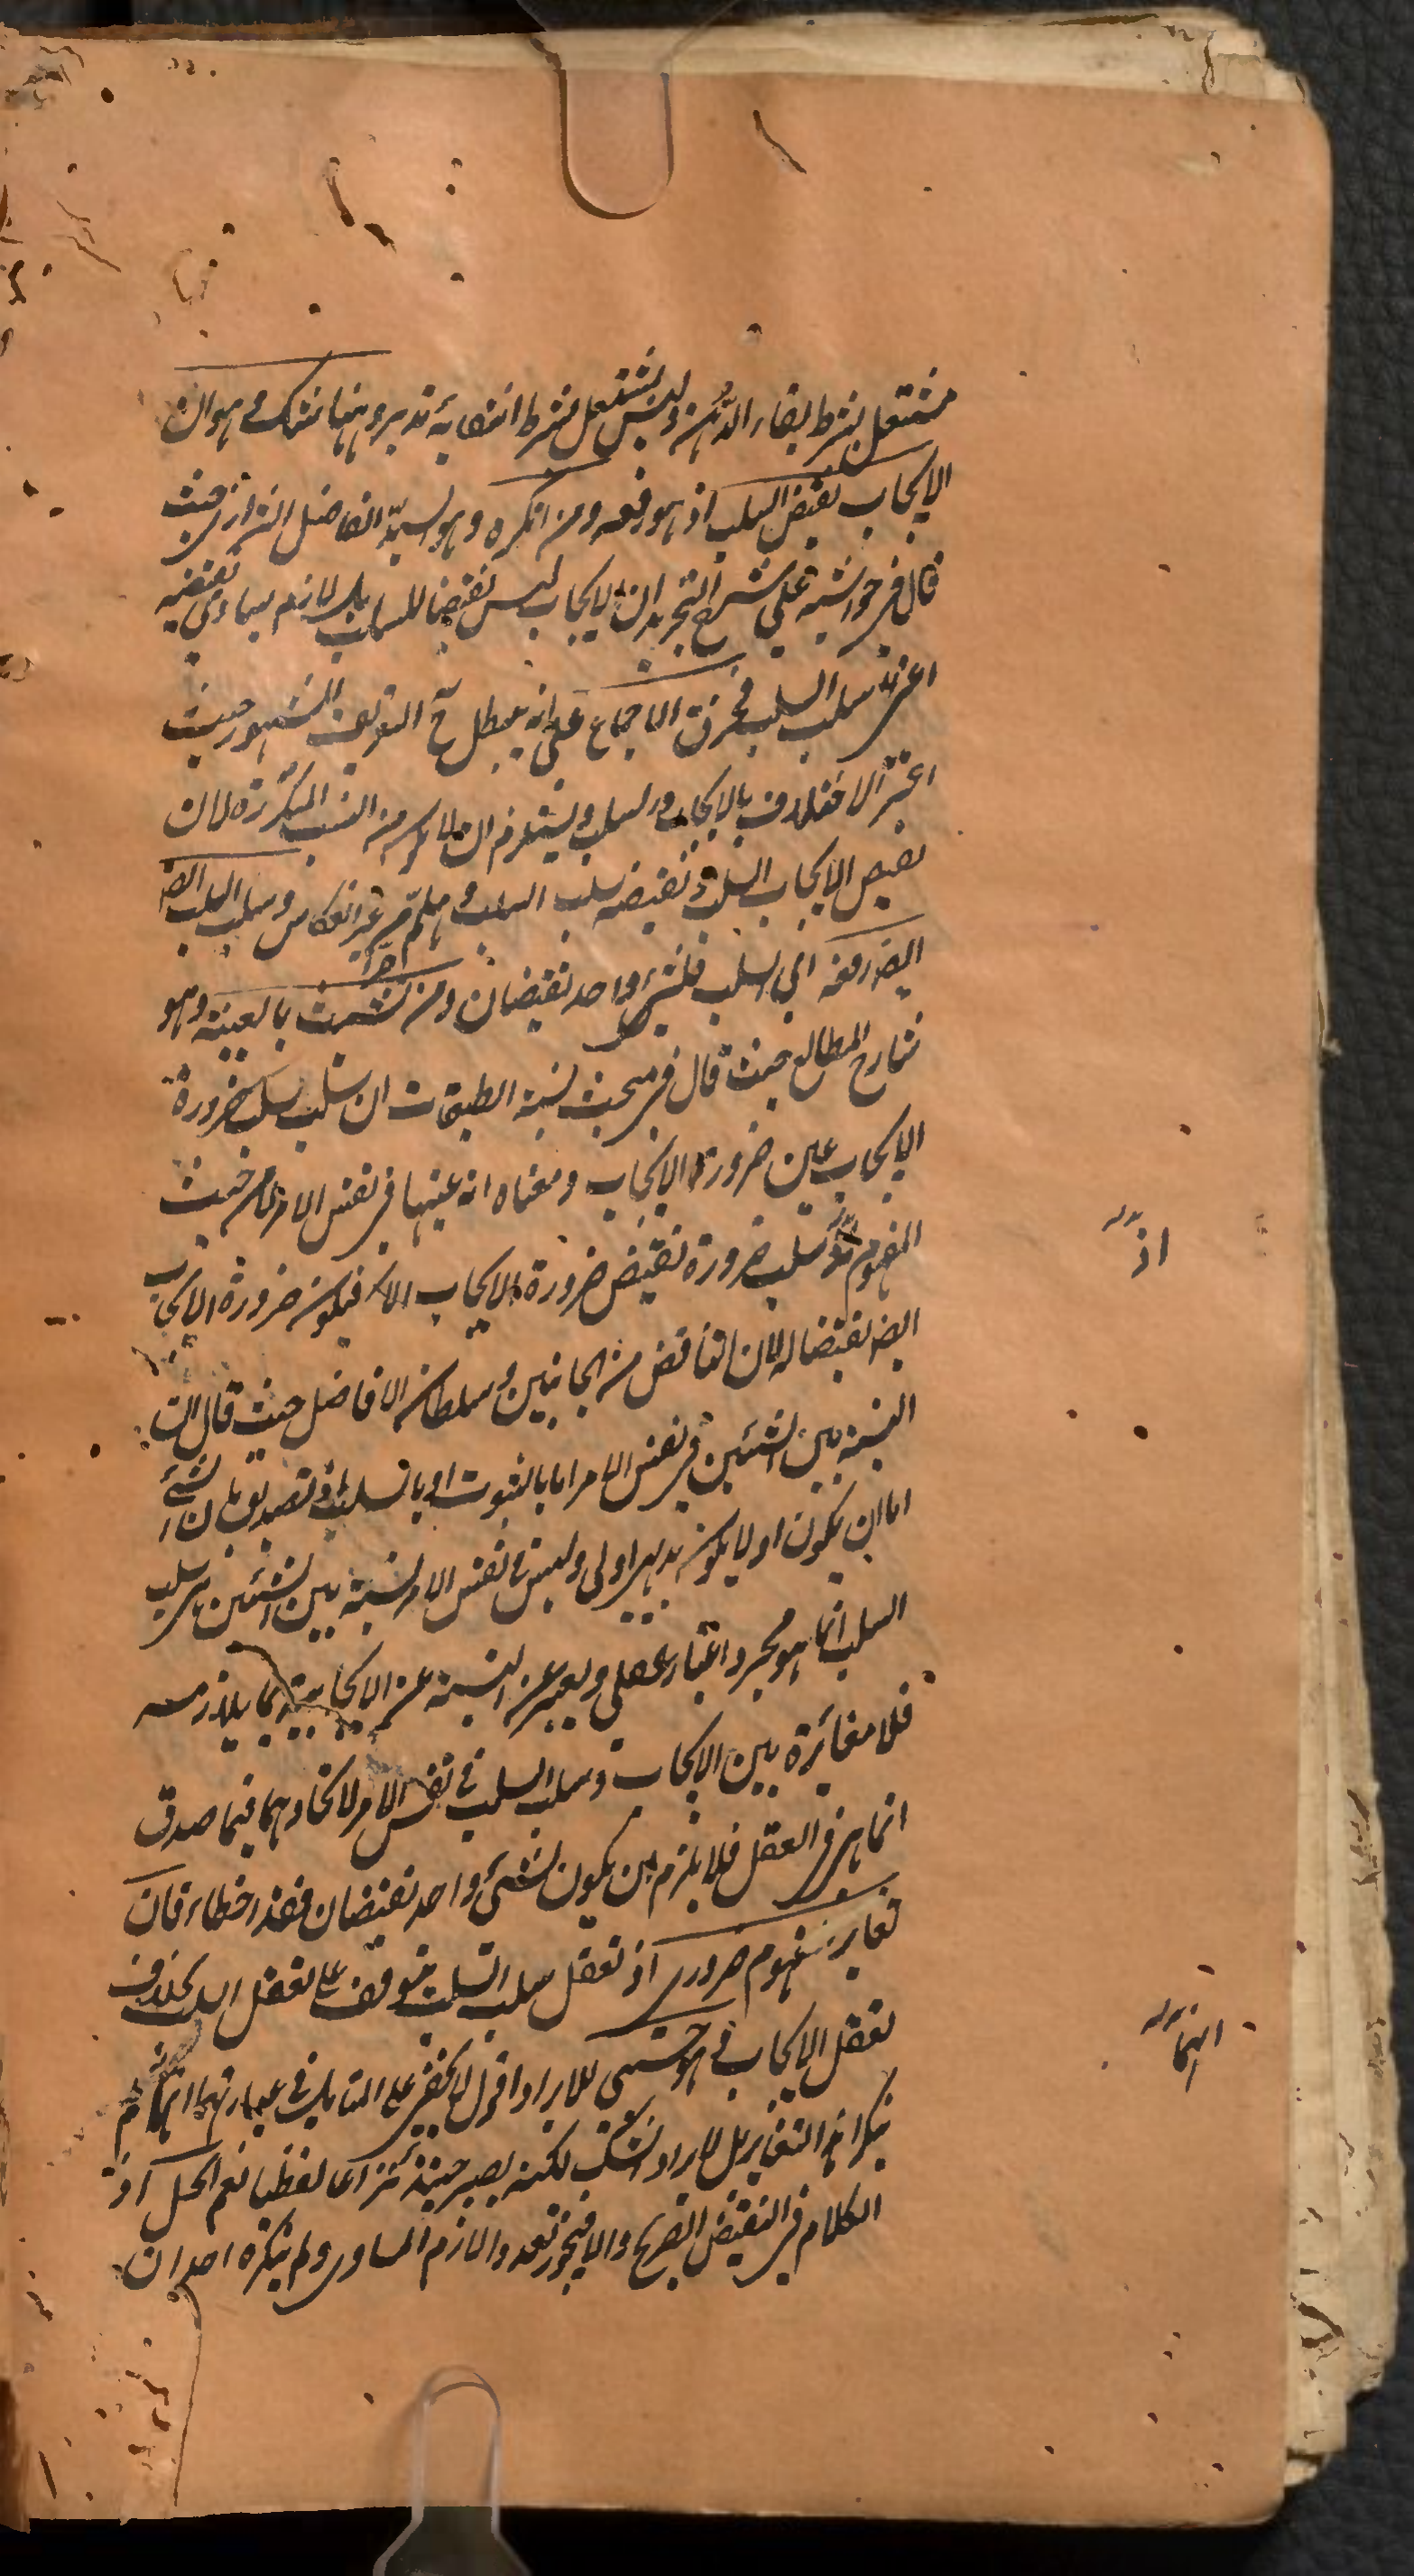 مشتعل بشرط بقاء الدهن وليس بمشتعل بشرط انتفائه تدبر وههنا شك وهو ان
الايجاب نقيض السلب اذ هو رفعه ومن انكره وهو السيد الفاضل الشيرازي حيث
قال في حواشيه على شرح التجريد ان الايجاب ليس نقيضا للسلب بل لازم مساوي نقيضه
اعني سلب السلب فخرق الاجماع على انه يبطل ح التعريف المشهور حيث
اعتبر الاختلاف بالايجاب والسلب ويستلزم ان لا يكون من النسب المتكررة لان
نقيض الايجاب السلب ونقيضه سلب السلب وهلم من غير انعكاس وسلب السلب ايضا
ايضا رفعه اي السلب فلشيء واحد نقيضان ومن تشبث بالعينية وهو
شارح المطالع حيث قال في مبحث نسبة الطبقات ان سلب سلب ضرورة
الايجاب عين ضرورة الايجاب ومعناه انه عينها في نفس الامر لا من حيث
المفهوم سلب ضرورة نقيض ضرورة الايجاب فيكون ضرورة الايجاب
ايضا نقيضا له لان التناقض من الجانبين وسلطان الافاضل حيث قال ان
النسبة بين الشيئين في نفس الامر اما بالثبوت او بالسلب اذ تصديق بان الشيء
اما ان يكون او لا يكون بديهي اولي وليس في نفس الامر نسبة بين الشيئين هي سلب
السلب انما هو مجرد اعتبار عقلي ويعبر عن النسبة عن الايجابية بما يلازمه
فلا مغائرة بين الايجاب وسلب السلب في نفس الامر لاتحادهما فيما صدق
انما هي في العقل فلا يلزم ان يكون لشيء واحد نقيضان فقد اخطاء فان
تغاير المفهوم ضروري اذ تعقل سلب السلب متوقف على تعقل السلب بخلاف
تعقل الايجاب وهو حسبي للايراد اقول لا يخفى على المتامل في عبارتهما انهما لم
ينكرا هذا التغاير بل لايراد السلب لكنه يصير حينئذ نزاعا لفظيا نعم الحل اذ
الكلام في النقيض الصريح والا فيجوز تعدد اللازم المساوي ولم ينكره احد ان
اذ
انهما